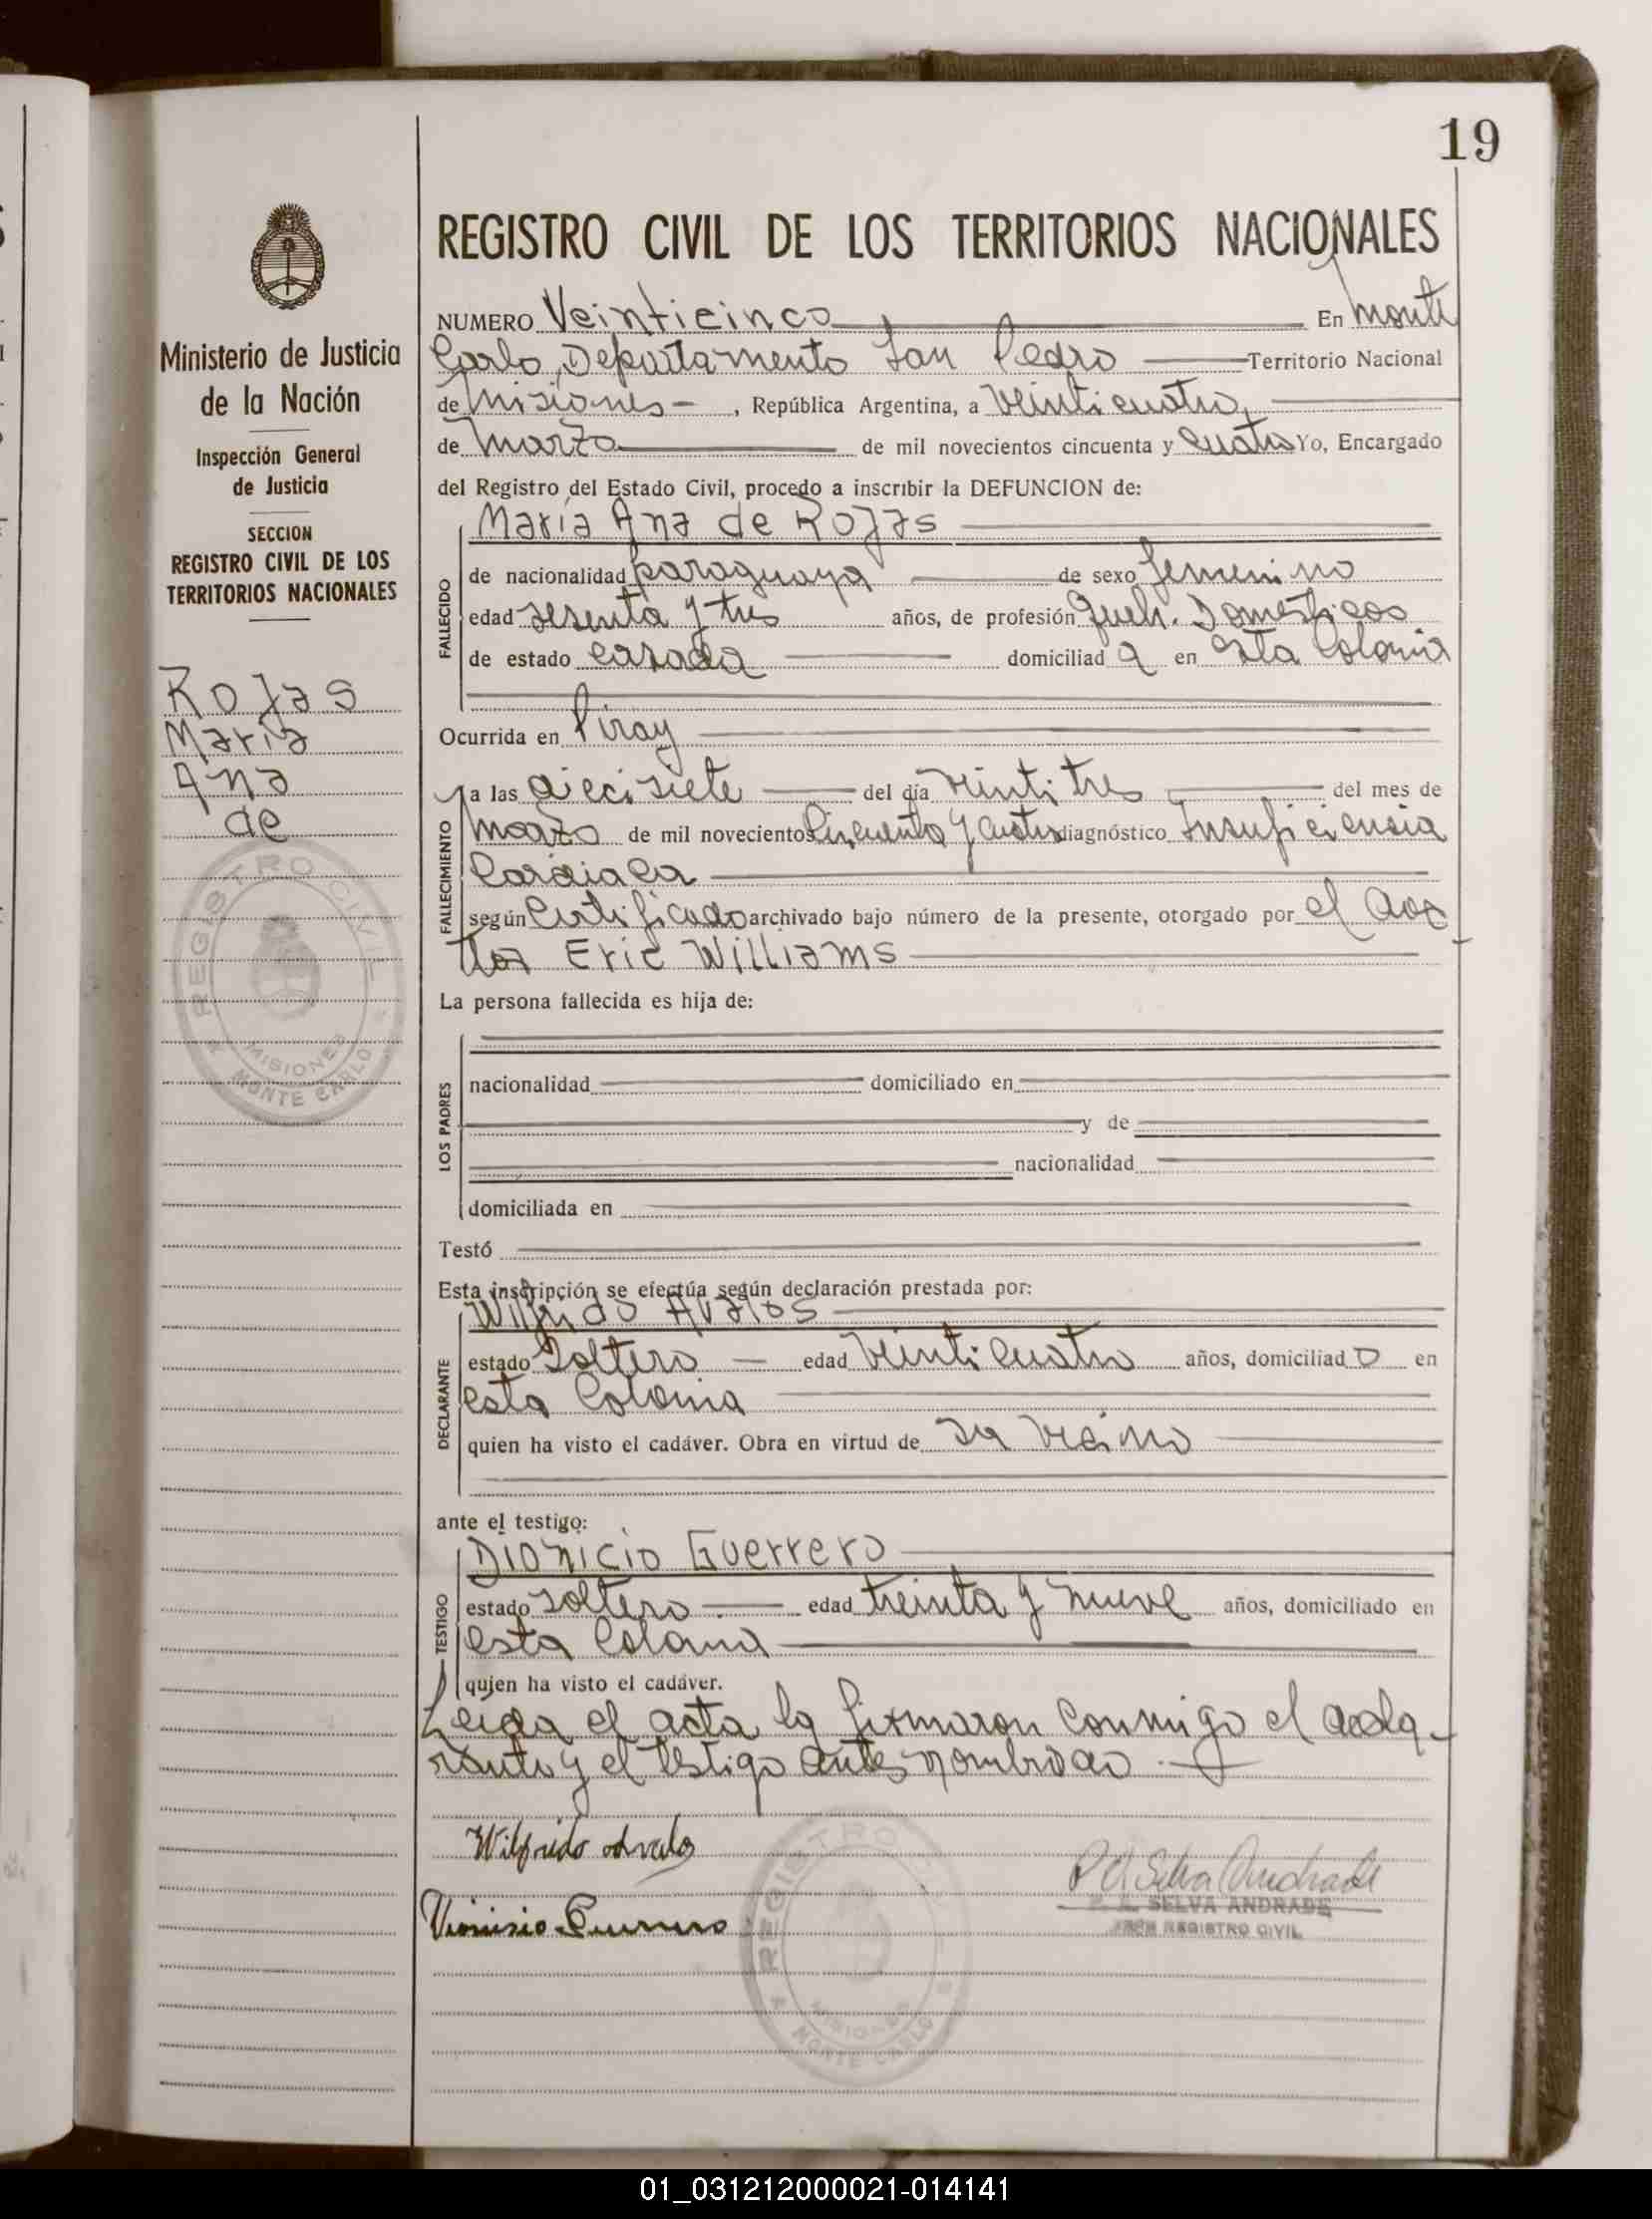 19
Ministerio de Justicia
de la Nación
Inspección General
de Justicia
SECCION
REGISTRO CIVIL DE LOS
TERRITORIOS NACIONALES
Rojas
María
Ana
de
REGISTRO CIVIL
MISIONES
MONTE CARLO
REGISTRO CIVIL DE LOS TERRITORIOS NACIONALES
NUMERO Veinticinco En Monte
Carlo, Departamento San Pedro Territorio Nacional
de Misiones , República Argentina, a Veinticuatro,
de Marzo de mil novecientos cincuenta y cuatro Yo, Encargado
del Registro del Estado Civil, procedo a inscribir la DEFUNCION de:
María Ana de Rojas
FALLECIDO
de nacionalidad paraguaya de sexo femenino
edad sesenta y tres años, de profesión queh. Domesticos
de estado casada domiciliad a en esta Colonia
Ocurrida en Piray
FALLECIMIENTO
a las diecisiete del día veintitres del mes de
marzo de mil novecientos cincuenta y cuatro diagnóstico Insuficiensia
Cardiaca
según Certificado archivado bajo número de la presente, otorgado por el doc
tor Eric Williams
La persona fallecida es hija de:
LOS PADRES
nacionalidad domiciliado en
y de
nacionalidad
domiciliada en
Testó
Esta inscripción se efectúa según declaración prestada por:
Wilfrido Avalos
DECLARANTE
estado Soltero edad Veinticuatro años, domiciliad o en
esta Colonia
quien ha visto el cadáver. Obra en virtud de ser vecino
ante el testigo:
Dionicio Guerrero
TESTIGO
estado soltero edad treinta y nueve años, domiciliado en
esta Colonia
quien ha visto el cadáver.
Leida el acta la firmaron conmigo el decla-
rante y el testigo antes nombrado.
Wilfrido Avalos
Dionisio Guerrero
P d Selva Andrade
SELVA ANDRADE
REGISTRO CIVIL
REGISTRO C
MISIONES
MONTE CARLO
01_031212000021-014141